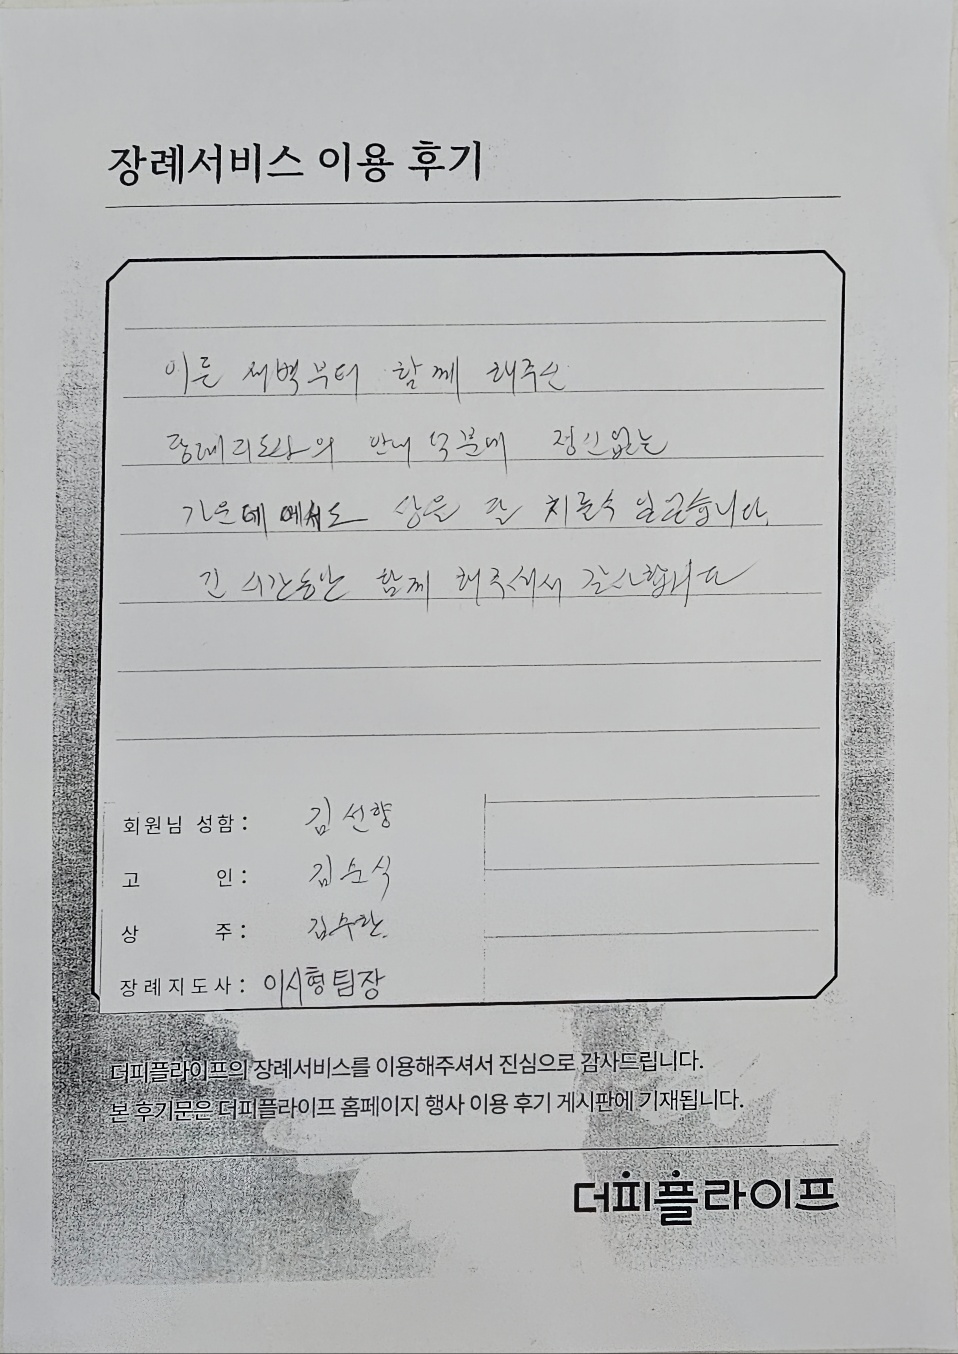 장례서비스 이용 후기
이른 새벽부터 함께 해주신
장례지도사의 안내 덕분에 정신없는
가운데에서도 상을 잘 치를수 있었습니다.
긴 시간동안 함께 해주셔서 감사합니다
회원님 성함 : 김선향
고 인 : 김순식
상 주 :
장례지도사 : 이시형팀장
더피플라이프의 장례서비스를 이용해주셔서 진심으로 감사드립니다.
본 후기문은 더피플라이프 홈페이지 행사 이용 후기 게시판에 기재됩니다.
더피플라이프